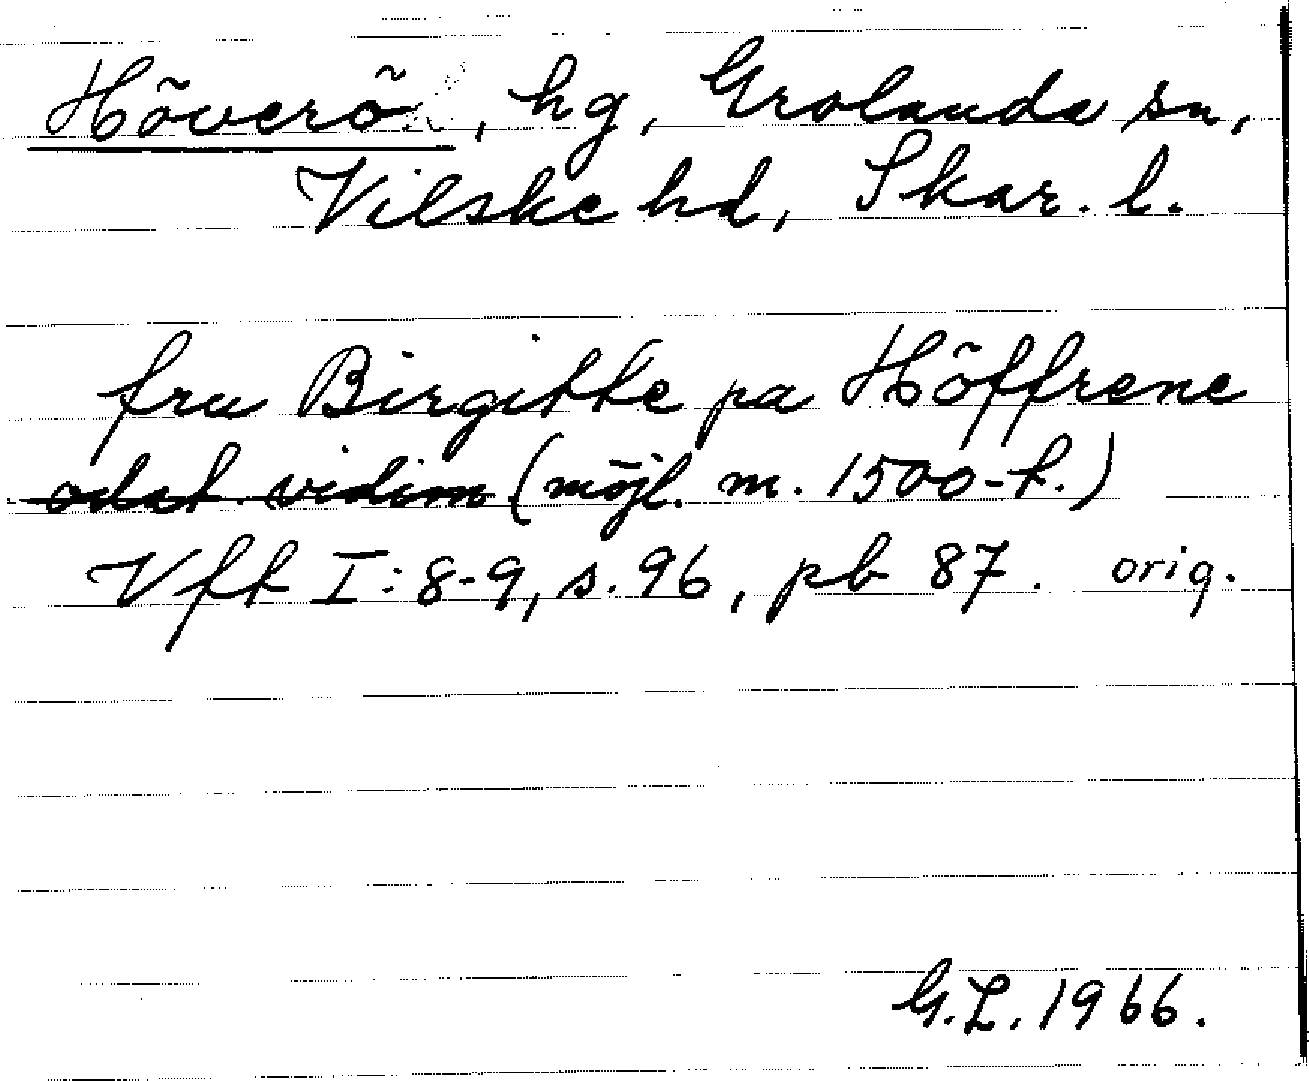 Höverö, hg, Grolanda sn,
Vilske hd, Skar. l.
fru Birgitte pa Höffrene
odat. vidim (möjl. m. 1500-t.)
Vft I: 8-9, s. 96, pb 87. orig.
G.L. 1966.